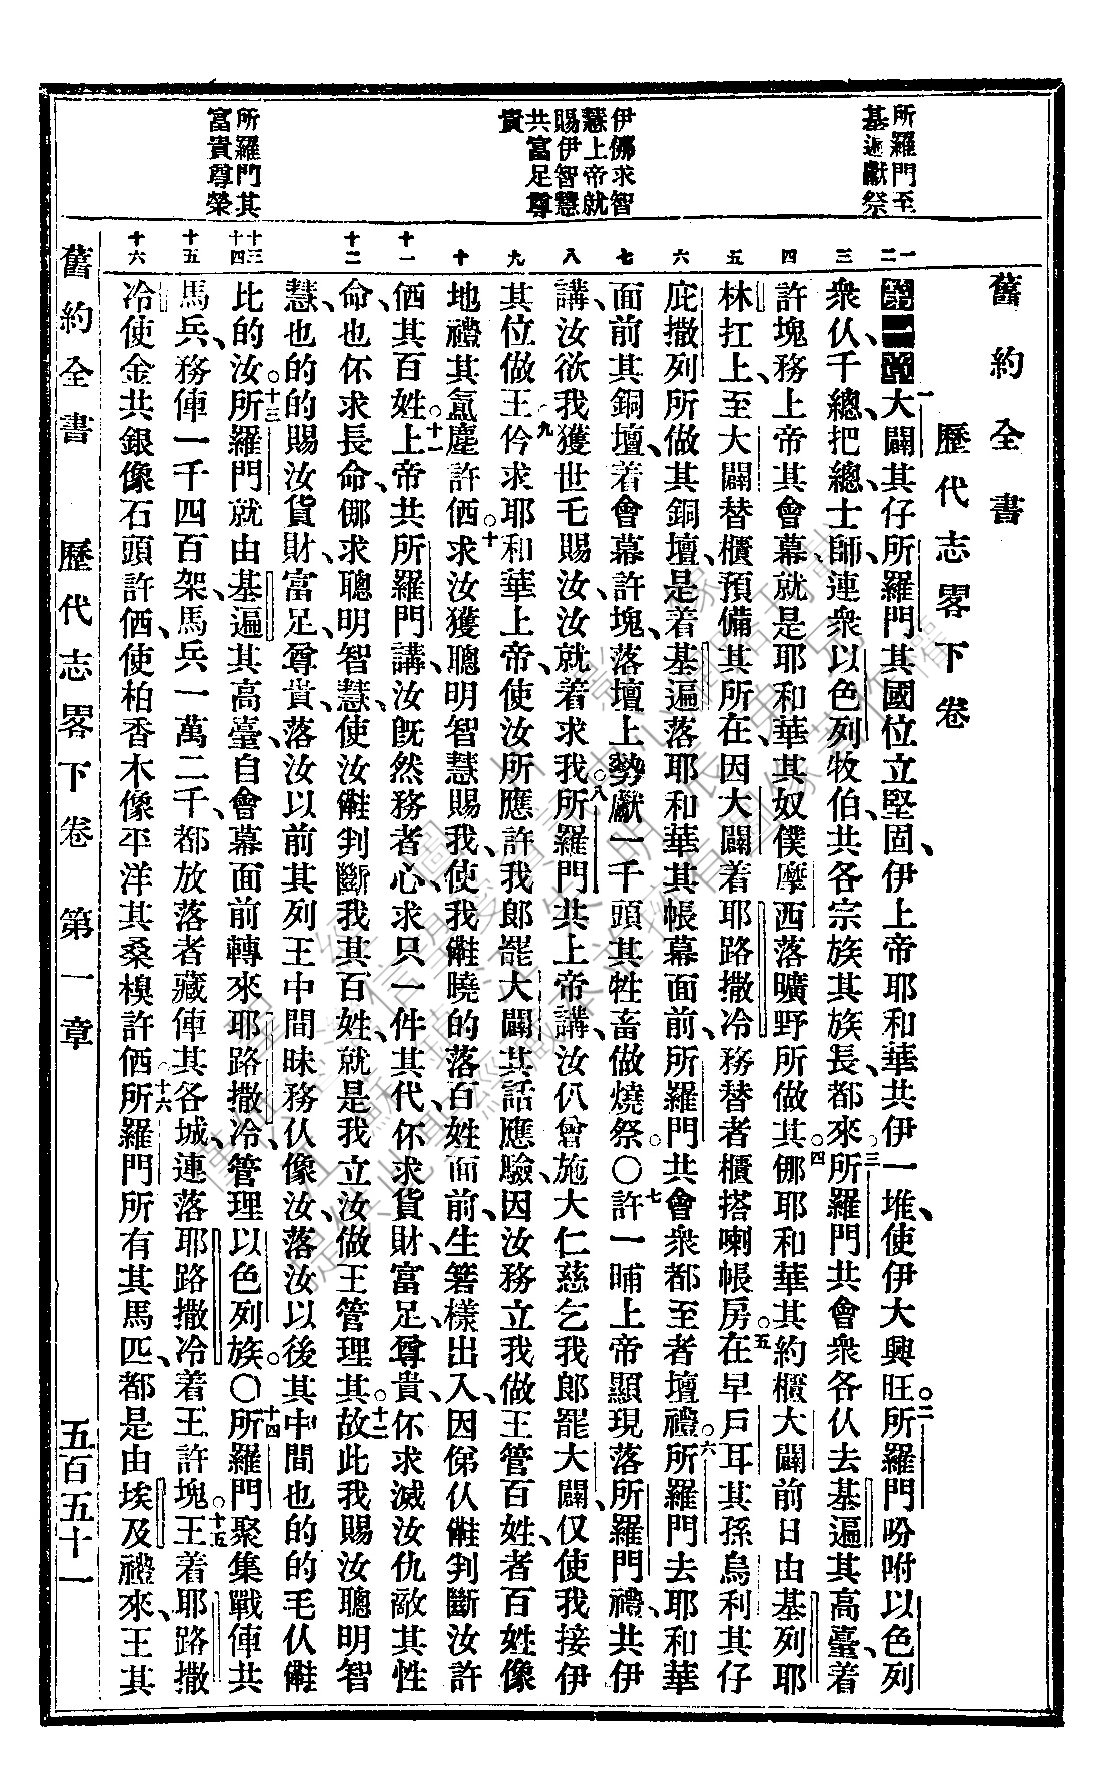 舊約全書
歷代志畧下卷
所羅門至
基遍獻祭
伊𠆧求智
慧上帝就
賜伊智慧
共富足尊
貴
所羅門其
富貴尊榮
一
二
三
四
五
六
七
八
九
十
十一
十二
十三
十四
十五
十六
第一章一大闢其仔所羅門其國位立堅固、伊上帝耶和華共伊一堆、使伊大興旺。二所羅門吩咐以色列
衆仈、千總、把總、士師、連衆以色列牧伯共各宗族其族長、都來。三所羅門共會衆各仈去基遍其高臺、着
許塊務上帝其會幕、就是耶和華其奴僕摩西落曠野所做其。四𠆧耶和華其約櫃、大闢前日由基列耶
林扛上、至大闢替櫃預備其所在、因大闢着耶路撒冷務替者櫃搭喇帳房。五在早戶耳其孫烏利其仔
庇撒列所做其銅壇、是着基遍落耶和華其帳幕面前、所羅門共會衆都至者壇禮。六所羅門去耶和華
面前其銅壇、着會幕許塊、落壇上勢獻一千頭其牲畜做燒祭。〇七許一晡上帝顯現落所羅門禮、共伊
講、汝欲我獲世乇賜汝、汝就着求我。八所羅門共上帝講、汝仈曾施大仁慈乞我郎罷大闢、仅使我接伊
其位做王。九仱求耶和華上帝、使汝所應許我郎罷大闢其話應驗、因汝務立我做王管百姓、者百姓像
地禮其氲塵許価。十求汝獲聰明智慧賜我、使我𠋡曉的落百姓面前、生箸樣出入、因俤仈𠋡判斷汝許
価其百姓。十一上帝共所羅門講、汝旣然務者心、求只一件其代、伓求貨財、富足、尊貴、伓求滅汝仇敵其性
命、也伓求長命、𠆧求聰明智慧、使汝𠋡判斷我其百姓、就是我立汝做王管理其。十二故此我賜汝聰明智
慧、也的的賜汝貨財、富足、尊貴、落汝以前其列王中間昧務仈像汝、落汝以後其中間也的的毛仈𠋡
比的汝。十三所羅門就由基遍其高臺、自會幕面前轉來耶路撒冷、管理以色列族。〇十四所羅門聚集戰俥共
馬兵、務俥一千四百架、馬兵一萬二千、都放落者藏俥其各城、連落耶路撒冷着王許塊。十五王着耶路撒
冷使金共銀像石頭許価、使柏香木像平洋其桑模許価。十六所羅門所有其馬匹、都是由埃及禮來、王其
舊約全書　歷代志畧下卷　第一章　五百五十一